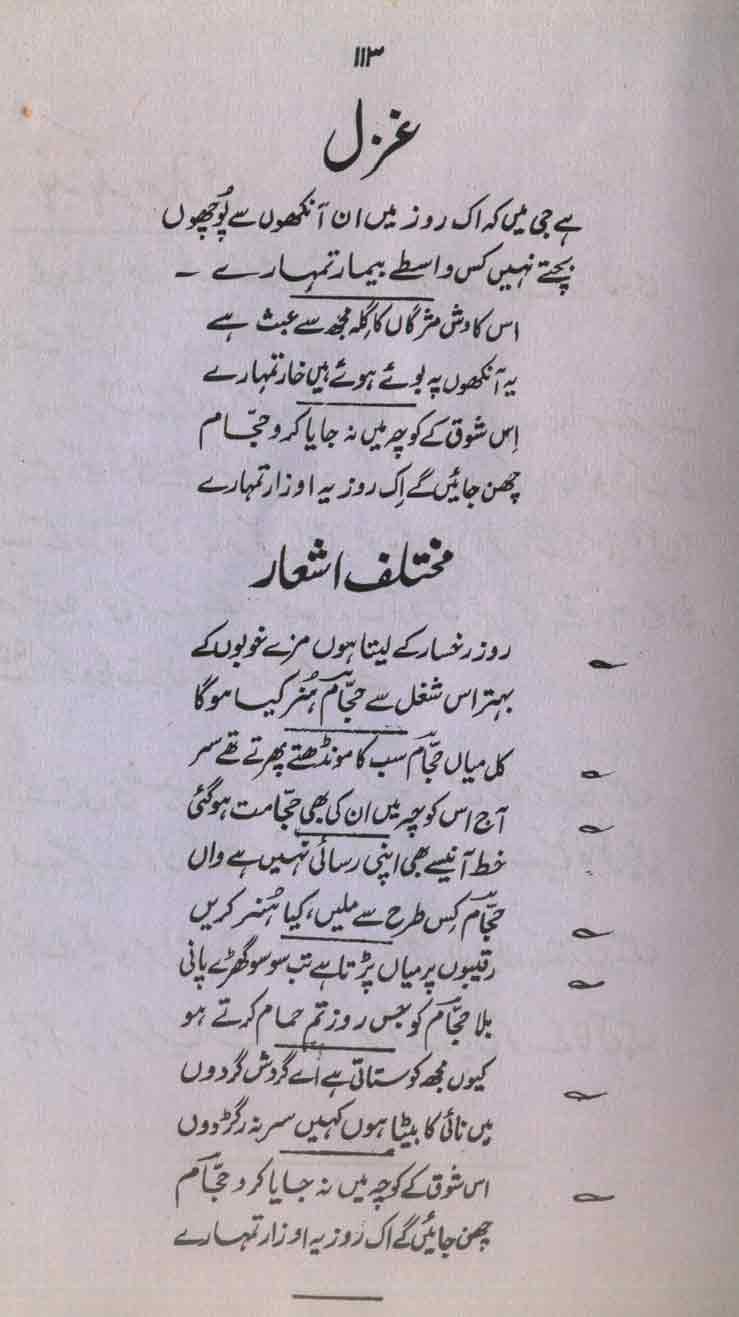 ۱۱۳
غزل
ہے جی میں کہ اک روز میں ان آنکھوں سے پوُچھوں
بچتے نہیں کس واسطے بیمار تمہارے ۔
اس کاوش مژگاں کا گِلہ مجھ سے عبث ہے
یہ آنکھوں پہ بوئے ہوئے ہیں خار تمہارے
اِس شوق کے کوچہ میں نہ جایا کرو حجّام
چھن جائیں گے اِک روز یہ اوزار تمہارے
مختلف اشعار
روز رخسار کے لیتا ہوں مزے خوبوں کے
بہتر اس شغل سے حجّام ہُنر کیا ہو گا
کل میاں حجّام سب کا مونڈھتے پھرتے تھے سر
آج اس کوچہ میں ان کی بھی حجّامت ہو گئی
خط آنیسے بھی اپنی رسائی نہیں ہے واں
حجّام کِس طرح سے ملیں، کیا ہُنر کریں
رقیبوں پر میاں پڑتا ہے تب سو سو گھڑے پانی
بلا حجّام کو جس روز تم حمام کرتے ہو
کیوں مجھ کو ستاتی ہے اے گردش گردوں
میں نائی کا بیٹا ہوں کہیں سر نہ رگڑ دوں
اس شوق کے کوچہ میں نہ جایا کرو حجّام
چھن جائیں گے اک روز یہ اوزار تمہارے